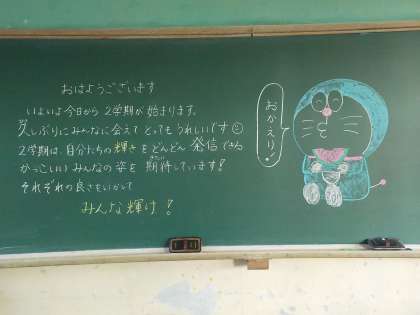 おはようございます
いよいよ今日から2学期が始まります。
久しぶりにみんなに会えてとってもうれしいです☺
2学期は、自分たちの輝きをどんどん発信できる
かっこいいみんなの姿を期待しています!
それぞれの良さをいかして
みんな輝け!
おかえり!